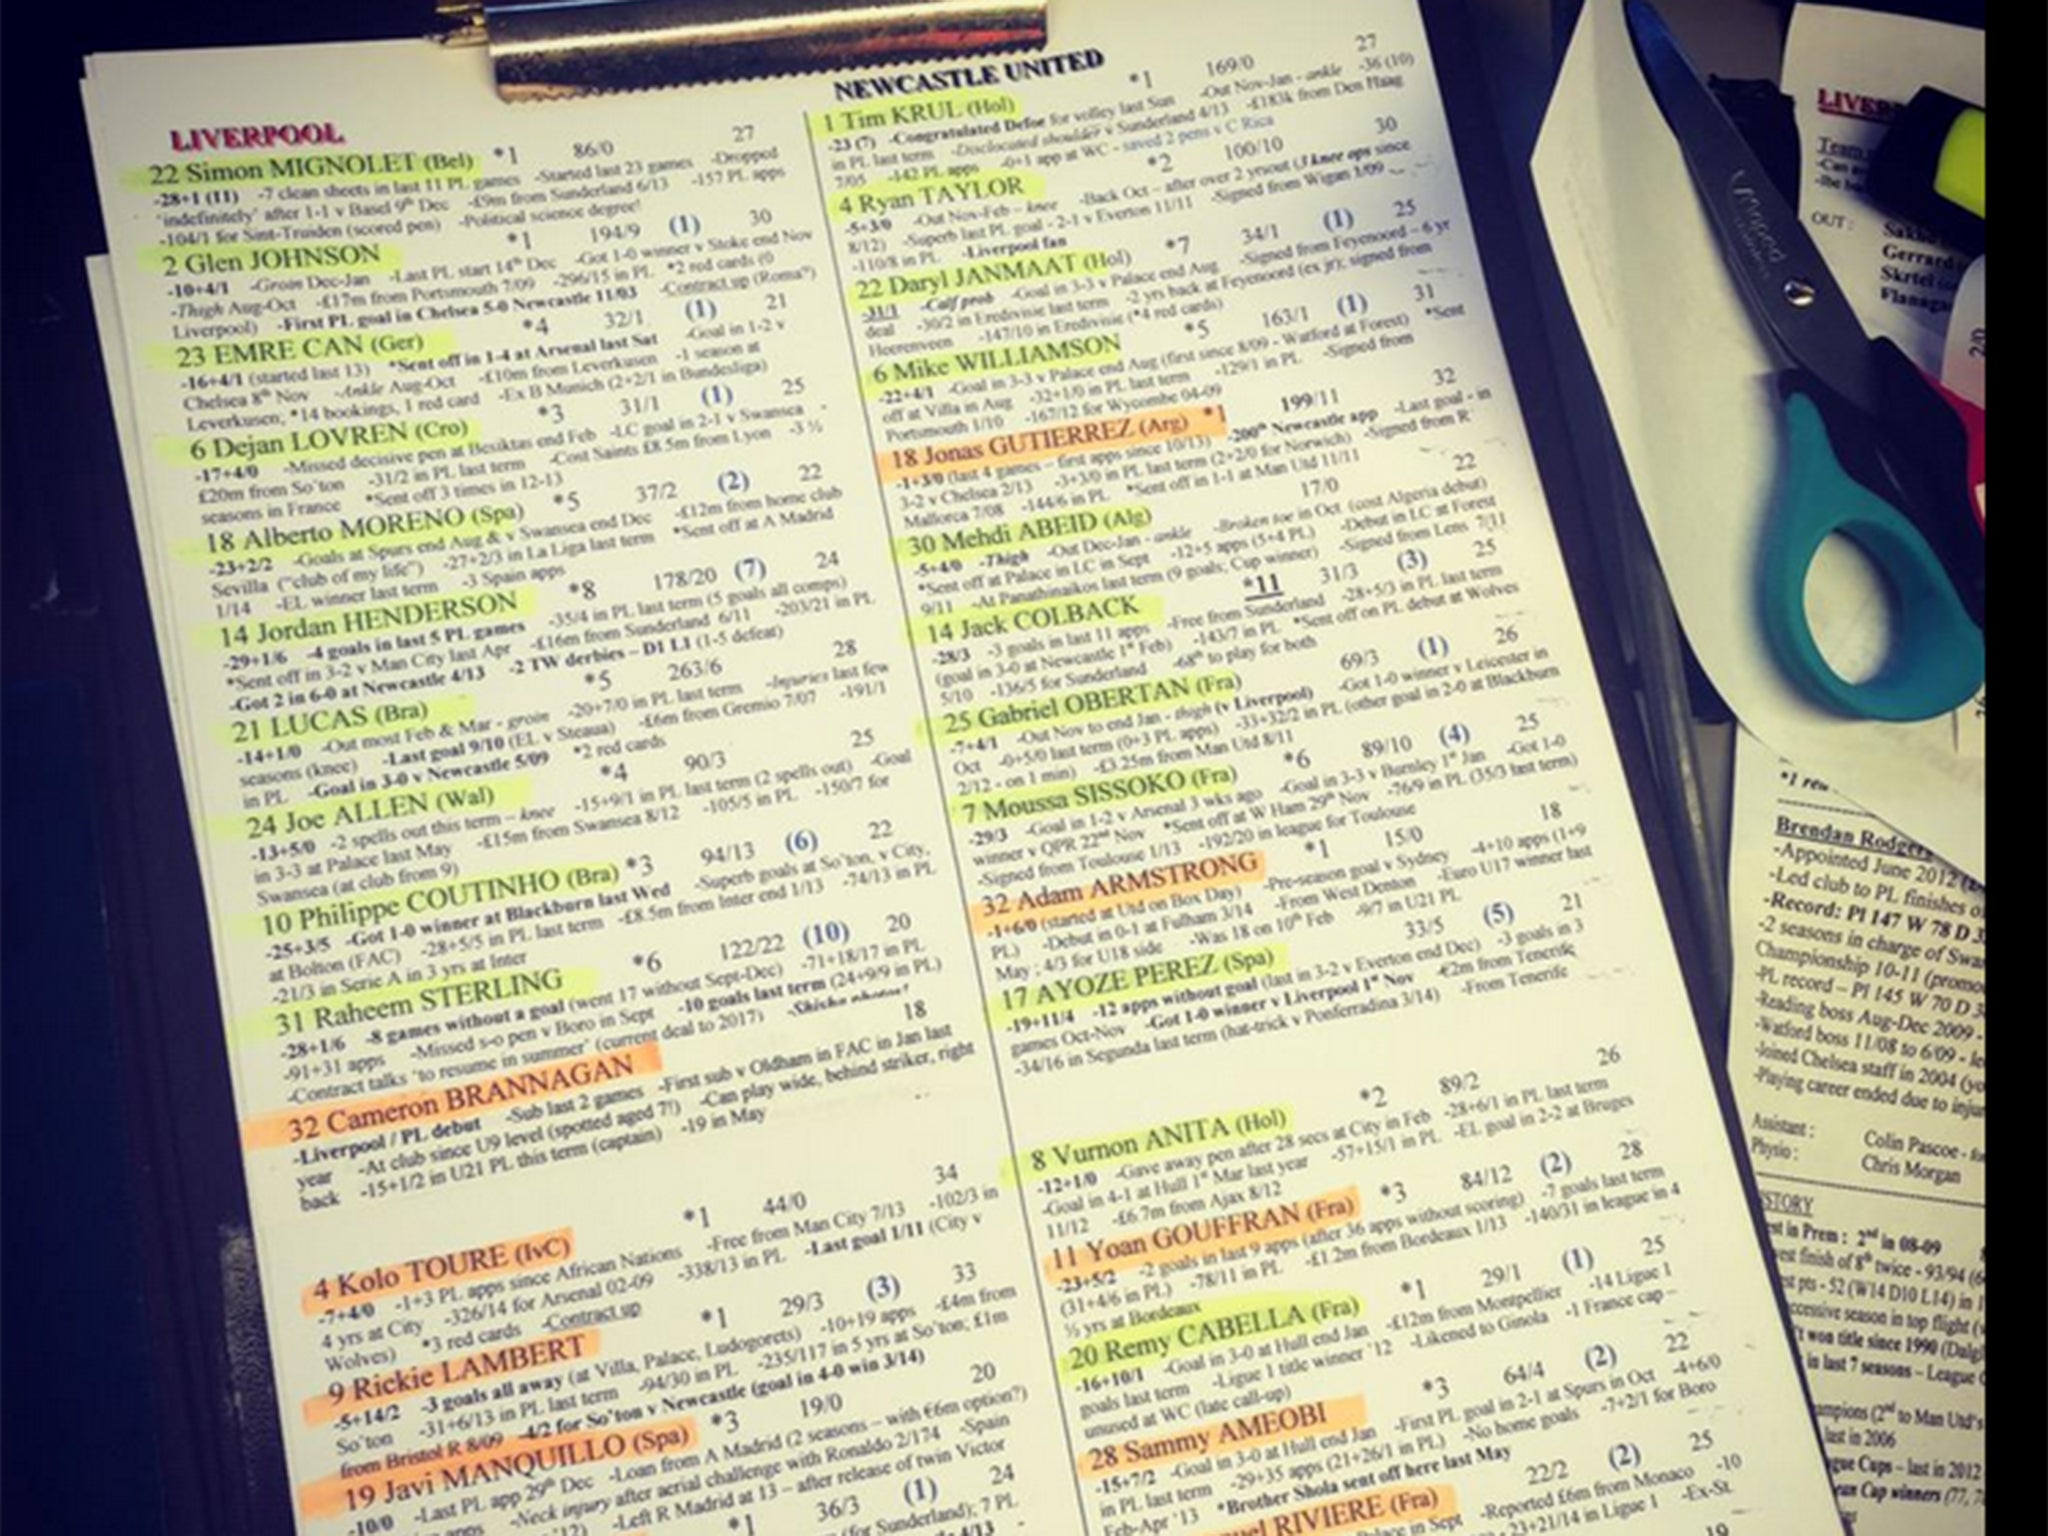 LIVERPOOL
22 Simon MIGNOLET (Bel) *1 86/0 27
-28+1 (11) -7 clean sheets in last 11 PL games -Started last 23 games -Dropped
'indefinitely' after 1-1 v Basel 9th Dec -£9m from Sunderland 6/13 -157 PL apps
-104/1 for Sint-Truiden (scored pen) -Political science degree!
2 Glen JOHNSON *1 194/9 (1) 30
-10+4/1 -Groin Dec-Jan -Last PL start 14th Dec -Got 1-0 winner v Stoke end Nov
-Thigh Aug-Oct -£17m from Portsmouth 7/09 -296/15 in PL *2 red cards (0
Liverpool) -First PL goal in Chelsea 5-0 Newcastle 11/03 -Contract up (Roma?)
23 EMRE CAN (Ger) *4 32/1 (1) 21
-16+4/1 (started last 13) *Sent off in 1-4 at Arsenal last Sat -Goal in 1-2 v
Chelsea 8th Nov -Ankle Aug-Oct -£10m from Leverkusen -1 season at
Leverkusen, *14 bookings, 1 red card -Ex B Munich (2+2/1 in Bundesliga)
6 Dejan LOVREN (Cro) *3 31/1 (1) 25
-17+4/0 -Missed decisive pen at Besiktas end Feb -LC goal in 2-1 v Swansea
£20m from So'ton -31/2 in PL last term -Cost Saints £8.5m from Lyon -3 ½
seasons in France *Sent off 3 times in 12-13
18 Alberto MORENO (Spa) *5 37/2 (2) 22
-23+2/2 -Goals at Spurs end Aug & v Swansea end Dec -£12m from home club
Sevilla ("club of my life") -27+2/3 in La Liga last term *Sent off at A Madrid
1/14 -EL winner last term -3 Spain apps
14 Jordan HENDERSON *8 178/20 (7) 24
-29+1/6 -4 goals in last 5 PL games -35/4 in PL last term (5 goals all comps)
*Sent off in 3-2 v Man City last Apr -£16m from Sunderland 6/11 -203/21 in PL
-Got 2 in 6-0 at Newcastle 4/13 -2 TW derbies – D1 L1 (1-5 defeat)
21 LUCAS (Bra) *5 263/6 28
-14+1/0 -Out most Feb & Mar - groin -20+7/0 in PL last term -Injuries last few
seasons (knee) -Last goal 9/10 (EL v Steaua) -£6m from Gremio 7/07 -191/1
in PL -Goal in 3-0 v Newcastle 5/09 *2 red cards
24 Joe ALLEN (Wal) *4 90/3 25
-13+5/0 -2 spells out this term – knee -15+9/1 in PL last term (2 spells out) -Goal
in 3-3 at Palace last May -£15m from Swansea 8/12 -105/5 in PL -150/7 for
Swansea (at club from 9)
10 Philippe COUTINHO (Bra) *3 94/13 (6) 22
-25+3/5 -Got 1-0 winner at Blackburn last Wed -Superb goals at So'ton, v City,
at Bolton (FAC) -28+5/5 in PL last term -£8.5m from Inter end 1/13 -74/13 in PL
-21/3 in Serie A in 3 yrs at Inter
31 Raheem STERLING *6 122/22 (10) 20
-28+1/6 -8 games without a goal (went 17 without Sept-Dec) -71+18/17 in PL
-91+31 apps -Missed s-o pen v Boro in Sept -10 goals last term (24+9/9 in PL)
-Contract talks 'to resume in summer' (current deal to 2017) -Shisha photos!
32 Cameron BRANNAGAN 18
-Liverpool / PL debut -Sub last 2 games -First sub v Oldham in FAC in Jan last
year -At club since U9 level (spotted aged 7!) -Can play wide, behind striker, right
back -15+1/2 in U21 PL this term (captain) -19 in May
4 Kolo TOURE (IvC) *1 44/0 34
-7+4/0 -1+3 PL apps since African Nations -Free from Man City 7/13 -102/3 in
4 yrs at City -326/14 for Arsenal 02-09 -338/13 in PL -Last goal 1/11 (City v
Wolves) *3 red cards -Contract up
9 Rickie LAMBERT *1 29/3 (3) 33
-5+14/2 -3 goals all away (at Villa, Palace, Ludogorets) -10+19 apps -£4m from
So'ton -31+6/13 in PL last term -94/30 in PL -235/117 in 5 yrs at So'ton; £1m
from Bristol R 8/09 -4/2 for So'ton v Newcastle (goal in 4-0 win 3/14)
19 Javi MANQUILLO (Spa) *3 19/0 20
-10/0 -Last PL app 29th Dec -Loan from A Madrid (2 seasons – with €6m option?)
apps -Neck injury after aerial challenge with Ronaldo 2/174 -Spain
'12) -Left R Madrid at 13 – after release of twin Victor
*1 36/3 (1) 24
(for Sunderland); 7 PL
4/13
NEWCASTLE UNITED
1 Tim KRUL (Hol) *1 169/0 27
-23 (7) -Congratulated Defoe for volley last Sun -Out Nov-Jan - ankle -36 (10)
in PL last term -Dislocated shoulder v Sunderland 4/13 -£183k from Den Haag
7/05 -142 PL apps -0+1 app at WC - saved 2 pens v C Rica
4 Ryan TAYLOR *2 100/10 30
-5+3/0 -Out Nov-Feb – knee -Back Oct – after over 2 yrs out (3 knee ops since
8/12) -Superb last PL goal - 2-1 v Everton 11/11 -Signed from Wigan 1/09
-110/8 in PL -Liverpool fan
22 Daryl JANMAAT (Hol) *7 34/1 (1) 25
-31/1 -Calf prob -Goal in 3-3 v Palace end Aug -Signed from Feyenoord – 6 yr
deal -30/2 in Eredivisie last term -2 yrs back at Feyenoord (ex jr); signed from
Heerenveen -147/10 in Eredivisie (*4 red cards)
6 Mike WILLIAMSON *5 163/1 (1) 31
-22+4/1 -Goal in 3-3 v Palace end Aug (first since 8/09 - Watford at Forest) *Sent
off at Villa in Aug -32+1/0 in PL last term -129/1 in PL -Signed from
Portsmouth 1/10 -167/12 for Wycombe 04-09
18 Jonas GUTIERREZ (Arg) *1 199/11 32
-1+3/0 (last 4 games – first apps since 10/13) -200th Newcastle app -Last goal - in
3-2 v Chelsea 2/13 -3+3/0 in PL last term (2+2/0 for Norwich) -Signed from R
Mallorca 7/08 -144/6 in PL *Sent off in 1-1 at Man Utd 11/11
30 Mehdi ABEID (Alg) 17/0 22
-5+4/0 -Thigh -Out Dec-Jan - ankle -Broken toe in Oct (cost Algeria debut)
*Sent off at Palace in LC in Sept -12+5 apps (5+4 PL) -Debut in LC at Forest
9/11 -At Panathinaikos last term (9 goals; Cup winner) -Signed from Lens 7/11
14 Jack COLBACK *11 31/3 (3) 25
-28/3 -3 goals in last 11 apps -Free from Sunderland -28+5/3 in PL last term
(goal in 3-0 at Newcastle 1st Feb) -143/7 in PL *Sent off on PL debut at Wolves
5/10 -136/5 for Sunderland -68th to play for both
25 Gabriel OBERTAN (Fra) 69/3 (1) 26
-7+4/1 -Out Nov to end Jan - thigh (v Liverpool) -Got 1-0 winner v Leicester in
Oct -0+5/0 last term (0+3 PL apps) -33+32/2 in PL (other goal in 2-0 at Blackburn
2/12 - on 1 min) -£3.25m from Man Utd 8/11
7 Moussa SISSOKO (Fra) *6 89/10 (4) 25
-29/3 -Goal in 1-2 v Arsenal 3 wks ago -Goal in 3-3 v Burnley 1st Jan -Got 1-0
winner v QPR 22nd Nov *Sent off at W Ham 29th Nov -76/9 in PL (35/3 last term)
-Signed from Toulouse 1/13 -192/20 in league for Toulouse
32 Adam ARMSTRONG *1 15/0 18
-1+6/0 (started at Utd on Box Day) -Pre-season goal v Sydney -4+10 apps (1+9
PL) -Debut in 0-1 at Fulham 3/14 -From West Denton -Euro U17 winner last
May ; 4/3 for U18 side -Was 18 on 10th Feb -9/7 in U21 PL
17 AYOZE PEREZ (Spa) 33/5 (5) 21
-19+11/4 -12 apps without goal (last in 3-2 v Everton end Dec) -3 goals in 3
games Oct-Nov -Got 1-0 winner v Liverpool 1st Nov -€2m from Tenerife
-34/16 in Segunda last term (hat-trick v Ponferradina 3/14) -From Tenerife
8 Vurnon ANITA (Hol) *2 89/2 26
-12+1/0 -Gave away pen after 28 secs at City in Feb -28+6/1 in PL last term
-Goal in 4-1 at Hull 1st Mar last year -57+15/1 in PL -EL goal in 2-2 at Bruges
11/12 -£6.7m from Ajax 8/12
11 Yoan GOUFFRAN (Fra) *3 84/12 (2) 28
-23+5/2 -2 goals in last 9 apps (after 36 apps without scoring) -7 goals last term
(31+4/6 in PL) -78/11 in PL -£1.2m from Bordeaux 1/13 -140/31 in league in 4
½ yrs at Bordeaux
20 Remy CABELLA (Fra) *1 29/1 (1) 25
-16+10/1 -Goal in 3-0 at Hull end Jan -£12m from Montpellier -14 Ligue 1
goals last term -Ligue 1 title winner '12 -Likened to Ginola -1 France cap –
unused at WC (late call-up)
28 Sammy AMEOBI *3 64/4 (2) 22
-15+7/2 -Goal in 3-0 at Hull end Jan -First PL goal in 2-1 at Spurs in Oct -4+6/0
in PL last term -29+35 apps (21+26/1 in PL) -No home goals -7+2/1 for Boro
Feb-Apr '13 *Brother Shola sent off here last May
RIVIERE (Fra) 22/2 (2) 25
Palace in Sept -Reported £6m from Monaco -10
-23+21/14 in Ligue 1 -Ex-St.
19
LIVER
Team
-Can
OUT :
Sakho
Gerrard
Skrtel
Flanaga
2/0
*1 
Brendan Rodgers
-Appointed June 2012
-Led club to PL finishes o
-Record: Pl 147 W 78 D 3
-2 seasons in charge of Swa
Championship 10-11 (promo
-PL record – Pl 145 W 70 D 3
-Reading boss Aug-Dec 2009 -
-Watford boss 11/08 to 6/09 - le
-Joined Chelsea staff in 2004 (yo
-Playing career ended due to inju
Assistant : Colin Pascoe -
Physio : Chris Morgan
STORY
est in Prem : 2nd in 08-09
est finish of 8th twice - 93/94 (6
st pts - 52 (W14 D10 L14) in 1
ccessive season in top flight (
't won title since 1990 (Dalgl
in last 7 seasons – League C
mpions (2nd to Man Utd's
last in 2006
gue Cups – last in 2012
ean Cup winners (77, 7